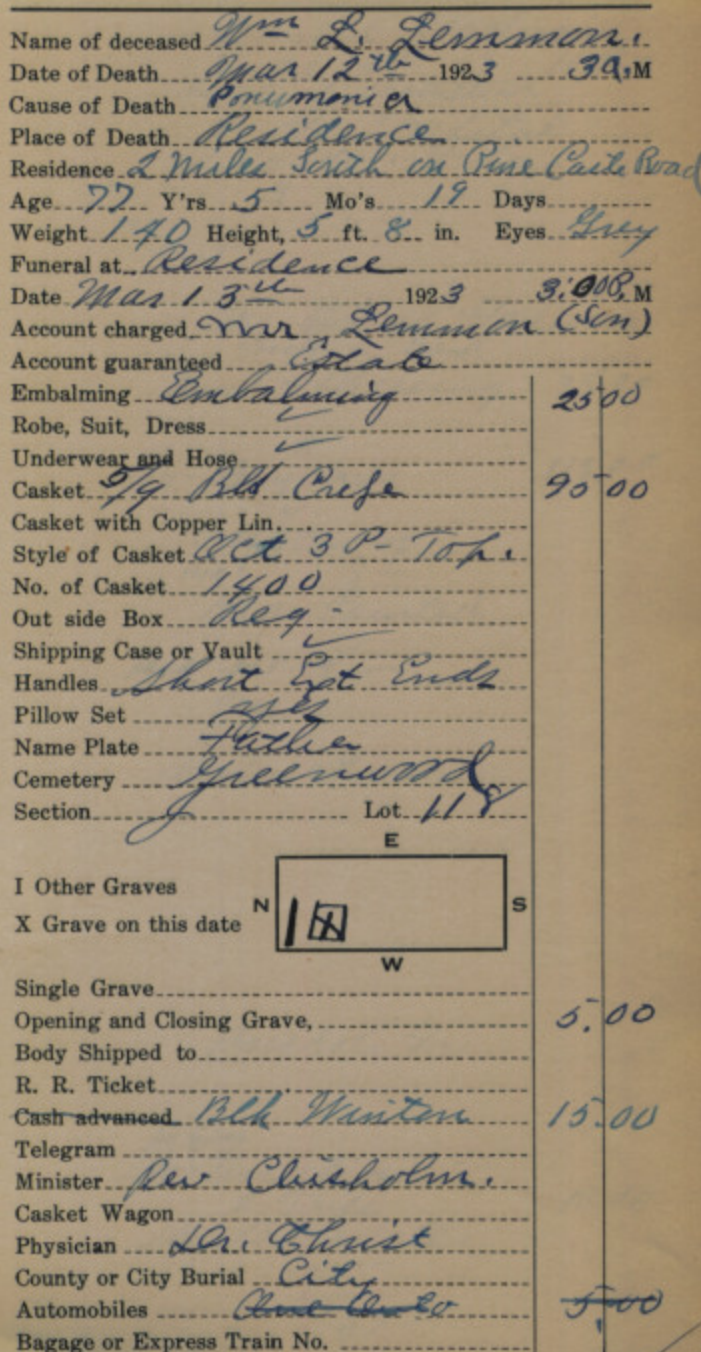 Name of deceased Wm L. Lemmon.
Date of Death Mar 12th 1923 3 A. M
Cause of Death Ponumonia
Place of Death Residence
Residence 2 Miles South on Pine Castle Road
Age 77 Y'rs 5 Mo's 19 Days
Weight 140 Height, 5 ft. 8 in. Eyes Grey
Funeral at Residence
Date Mar 13th 1923 3:00 P. M
Account charged Mr Lemmon (Son)
Account guaranteed Estate
Embalming Embalming 25 00
Robe, Suit, Dress
Underwear and Hose
Casket 5/9 Blk Crepe 90 00
Casket with Copper Lin.
Style of Casket Oct 3 P- Top.
No. of Casket 1400
Out side Box Reg-
Shipping Case or Vault
Handles Short Ext Ends
Pillow Set yes
Name Plate Father
Cemetery Greenwood
Section J Lot 118
E
I Other Graves
N S
X Grave on this date
W
Single Grave
Opening and Closing Grave, 5.00
Body Shipped to
R. R. Ticket
Cash advanced Blk Winton 15.00
Telegram
Minister Rev Chisholm.
Casket Wagon
Physician Dr. Christ
County or City Burial City
Automobiles One Auto 5.00
Bagage or Express Train No.